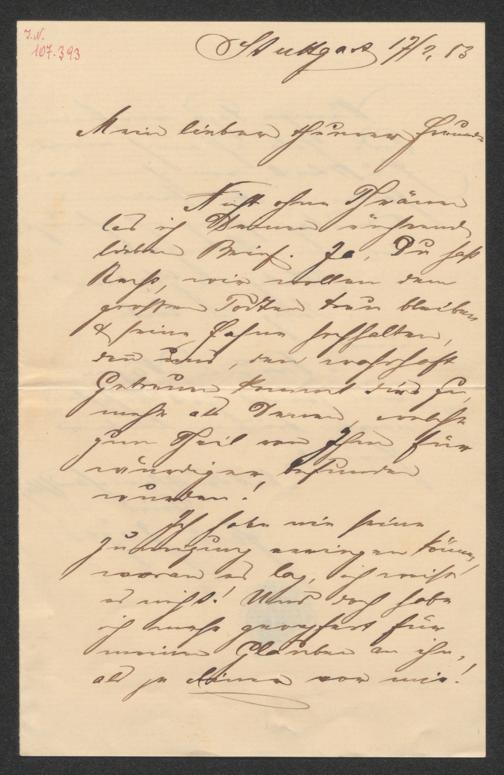 I.N.
107.393
Stuttgart 17/2. 83
Mein lieber theurer Freund
Nicht ohne Thränen
las ich Deinen rührend
lieben Brief. Ja, Du hast
Recht, wir wollen dem
großen Todten treu bleiben
& seine Fahne hochhalten,
den uns, den wahrhaft
Getreuen kommt dies zu,
mehr als Denen, welche
zum Theil von Ihm für
würdiger befunden
wurden!
Ich habe nie seine
Zuneigung erringen können,
woran es lag, ich weiß
es nicht! Und doch habe
ich mehr geopfert für
meinen Glauben an ihn,
als je Einer vor mir!